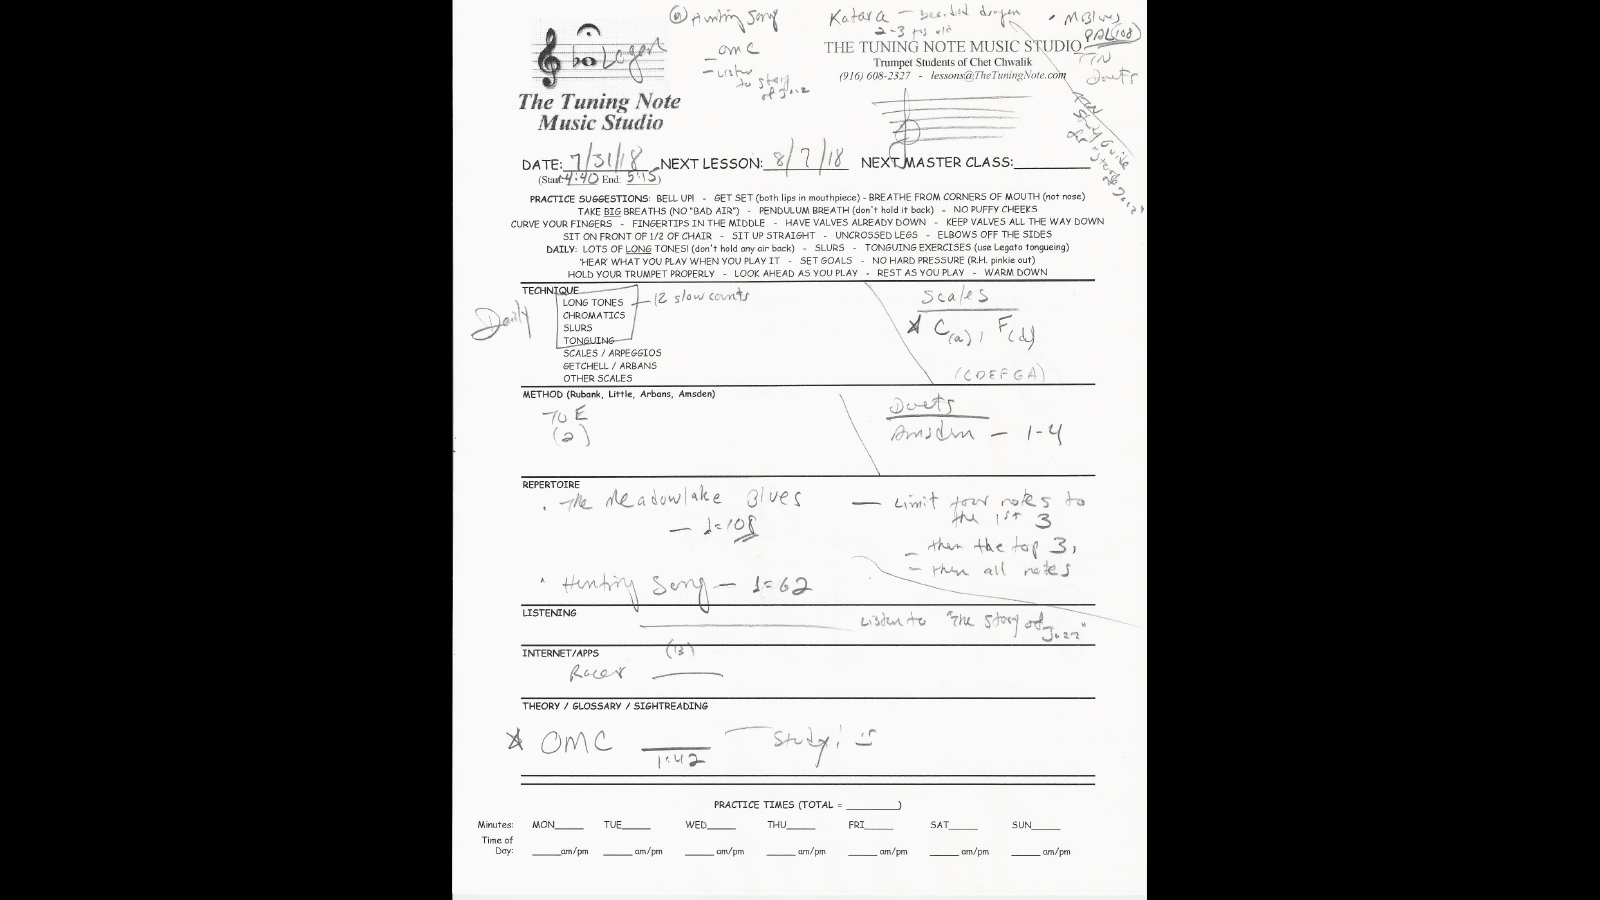 Hunting Song
Katara — bearded dragon
2-3 yrs old
• MBlues
PAL(108)
TTN
Duets
OMC
– Listen to story of Jazz
Study Guide for "Story of Jazz"
Logan
The Tuning Note
Music Studio
THE TUNING NOTE MUSIC STUDIO
Trumpet Students of Chet Chwalik
(916) 608-2327 - lessons@TheTuningNote.com
DATE: 7/31/18 NEXT LESSON: 8/7/18 NEXT MASTER CLASS:________
(Start 4:40 End: 5:15)
PRACTICE SUGGESTIONS: BELL UP! - GET SET (both lips in mouthpiece) - BREATHE FROM CORNERS OF MOUTH (not nose)
TAKE BIG BREATHS (NO "BAD AIR") - PENDULUM BREATH (don't hold it back) - NO PUFFY CHEEKS
CURVE YOUR FINGERS - FINGERTIPS IN THE MIDDLE - HAVE VALVES ALREADY DOWN - KEEP VALVES ALL THE WAY DOWN
SIT ON FRONT OF 1/2 OF CHAIR - SIT UP STRAIGHT - UNCROSSED LEGS - ELBOWS OFF THE SIDES
DAILY: LOTS OF LONG TONES! (don't hold any air back) - SLURS - TONGUING EXERCISES (use Legato tongueing)
'HEAR' WHAT YOU PLAY WHEN YOU PLAY IT - SET GOALS - NO HARD PRESSURE (R.H. pinkie out)
HOLD YOUR TRUMPET PROPERLY - LOOK AHEAD AS YOU PLAY - REST AS YOU PLAY - WARM DOWN
TECHNIQUE
Daily
LONG TONES — 12 slow counts
CHROMATICS
SLURS
TONGUING
SCALES / ARPEGGIOS
GETCHELL / ARBANS
OTHER SCALES
Scales
C(a), F(d)
(CDEFGA)
METHOD (Rubank, Little, Arbans, Amsden)
TOE
(2)
Duets
Amsden — 1-4
REPERTOIRE
• The Meadowlake Blues — Limit your notes to the 1st 3
— ♩=108
– then the top 3,
– then all notes
• Hunting Song — ♩=62
LISTENING
Listen to "The Story of Jazz"
INTERNET/APPS
(13)
Racer
THEORY / GLOSSARY / SIGHTREADING
OMC 1:42 Study!
PRACTICE TIMES (TOTAL = ________)
Minutes: MON_____ TUE_____ WED_____ THU_____ FRI_____ SAT_____ SUN_____
Time of
Day: _____am/pm _____am/pm _____am/pm _____am/pm _____am/pm _____am/pm _____am/pm